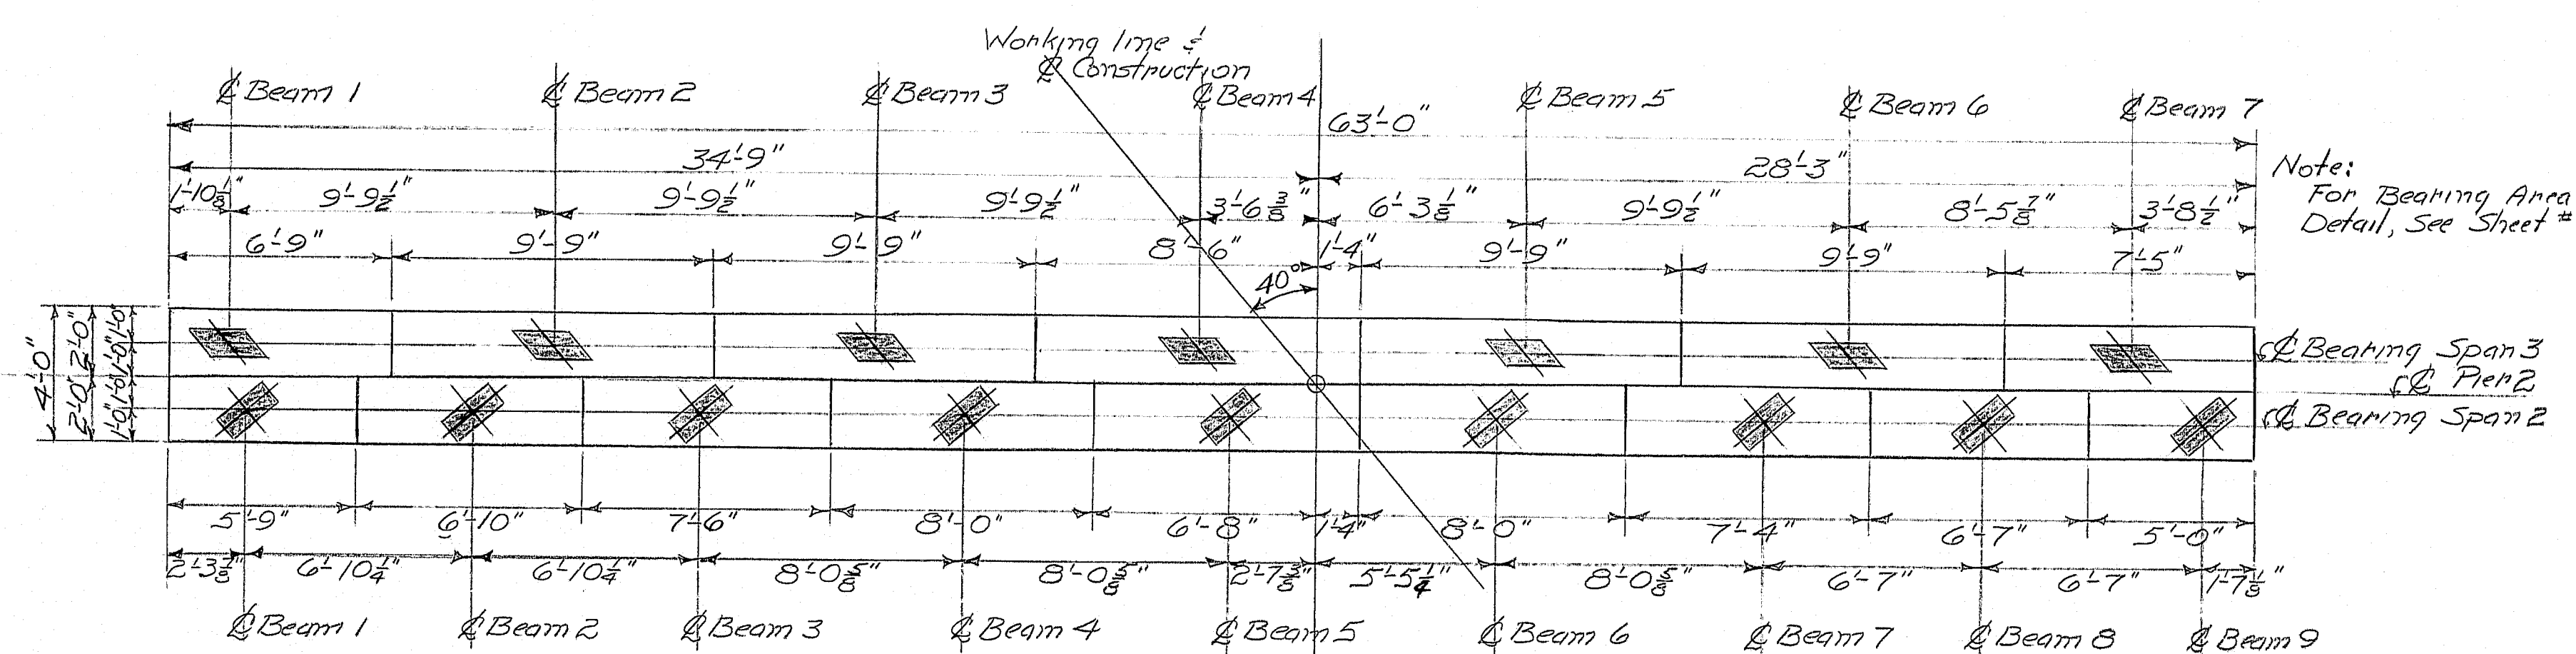 Working line &
℄ Construction
℄ Beam 1 ℄ Beam 2 ℄ Beam 3 ℄ Beam 4 ℄ Beam 5 ℄ Beam 6 ℄ Beam 7
63'-0"
34'-9" 28'-3"
1'-10 1/8" 9'-9 1/2" 9'-9 1/2" 9'-9 1/2" 3'-6 3/8" 6'-3 1/8" 9'-9 1/2" 8'-5 7/8" 3'-8 1/2"
6'-9" 9'-9" 9'-9" 8'-6" 1'-4" 9'-9" 9'-9" 7'-5"
40°
Note:
For Bearing Area
Detail, See Sheet #
4'-0"
2'-0" 2'-0"
1'-0" 1'-0" 1'-0" 1'-0"
℄ Bearing Span 3
℄ Pier 2
℄ Bearing Span 2
5'-9" 6'-10" 7'-6" 8'-0" 6'-8" 1'-4" 8'-0" 7'-4" 6'-7" 5'-0"
2'-3 1/8" 6'-10 1/4" 6'-10 1/4" 8'-0 5/8" 8'-0 5/8" 2'-7 3/8" 5'-5 1/4" 8'-0 5/8" 6'-7" 6'-7" 1'-7 1/8"
℄ Beam 1 ℄ Beam 2 ℄ Beam 3 ℄ Beam 4 ℄ Beam 5 ℄ Beam 6 ℄ Beam 7 ℄ Beam 8 ℄ Beam 9